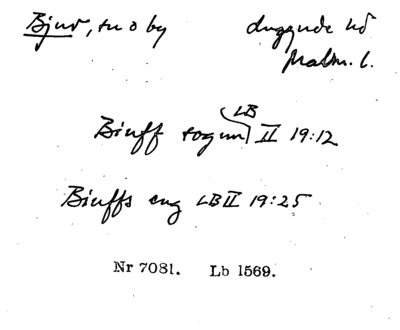 Bjuv, sn o by Luggude hd
Malm. l.
LB
Biuff sogun II 19:12
Biuffs eng LB II 19:25
Nr 7081. Lb 1569.